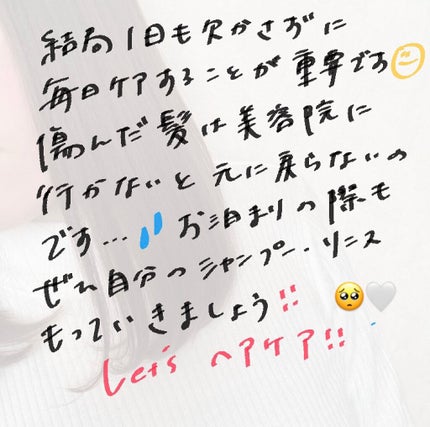 結局1日も欠かさずに
毎日ケアすることが重要です
傷んだ髪は美容院に
行かないと元に戻らないの
です… お泊まりの際も
ぜひ自分のシャンプー・リンス
もっていきましょう!!
Let's ヘアケア!!